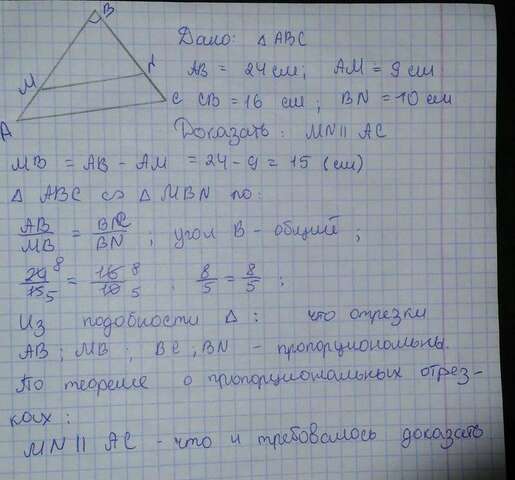 B
M
N
A
C
Дано: △ ABC
AB = 24 см; AM = 9 см
CB = 16 см; BN = 10 см
Доказать: MN || AC
MB = AB - AM = 24 - 9 = 15 (см)
△ ABC ∽ △ MBN по:
AB/MB = BC/BN ; угол B - общий ;
24/15 8/5 = 16/10 8/5 ; 8/5 = 8/5 ;
Из подобности △ : что отрезки
AB ; MB ; BC ; BN - пропорциональны.
По теореме о пропорциональных отрез-
ках :
MN || AC - что и требовалось доказать